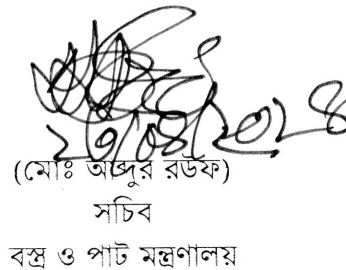 (মোঃ আব্দুর রউফ)
সচিব
বস্ত্র ও পাট মন্ত্রণালয়